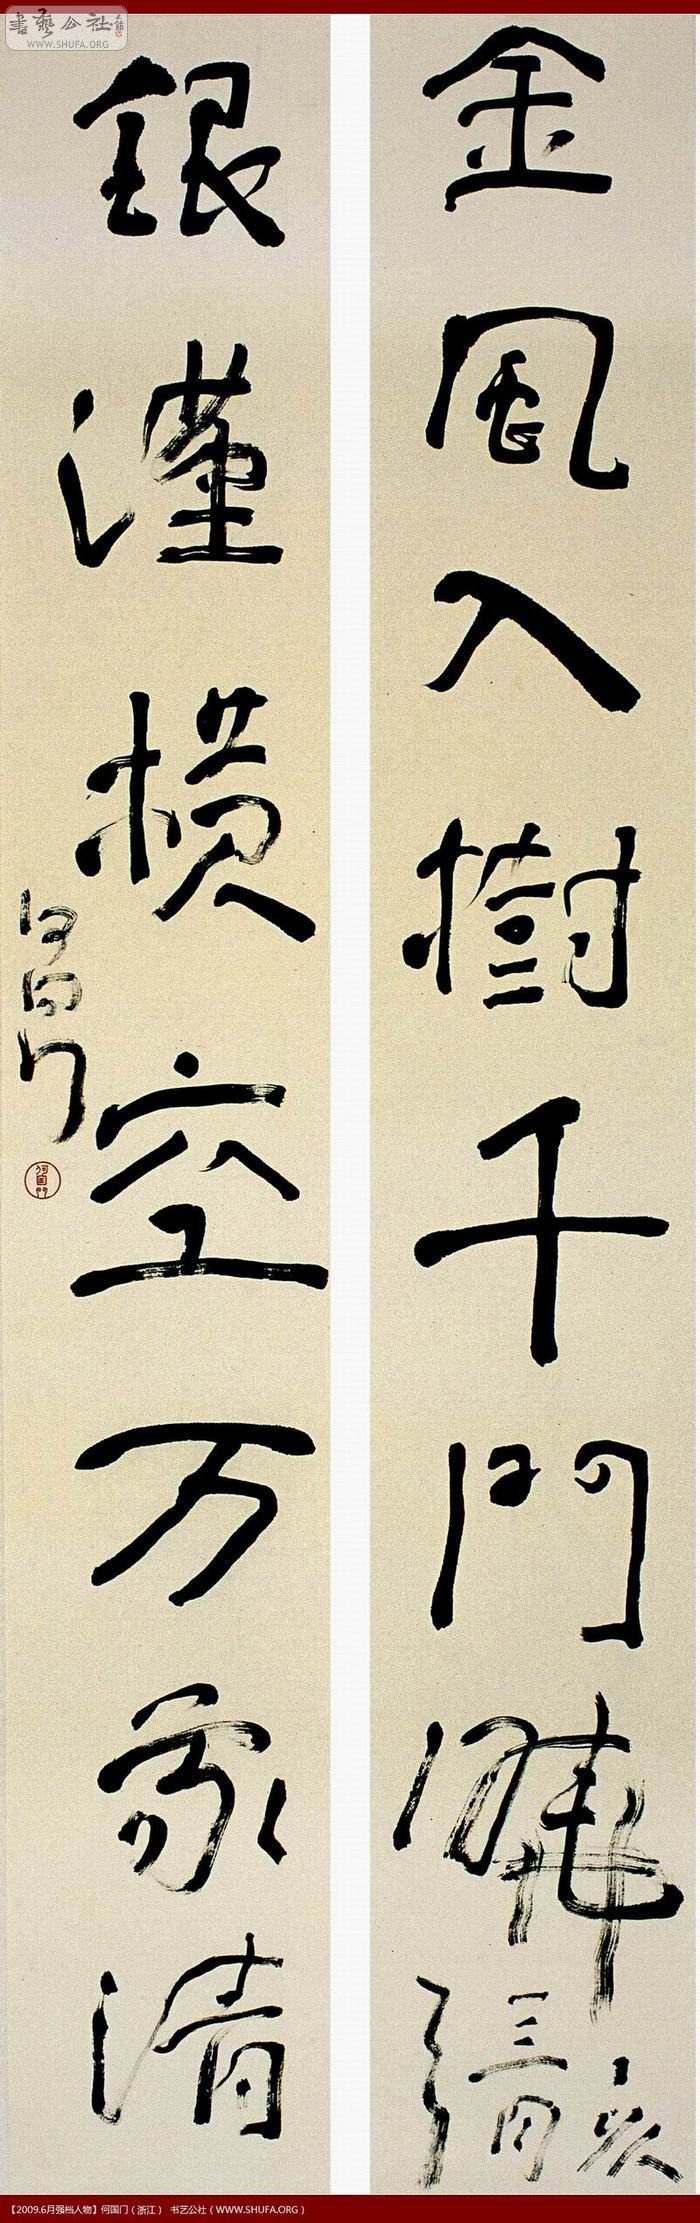 書藝公社
WWW.SHUFA.ORG
金風入樹千門
銀漢橫空万象清
何国门
何国門
【2009.6月强档人物】何国门（浙江） 书艺公社（WWW.SHUFA.ORG）